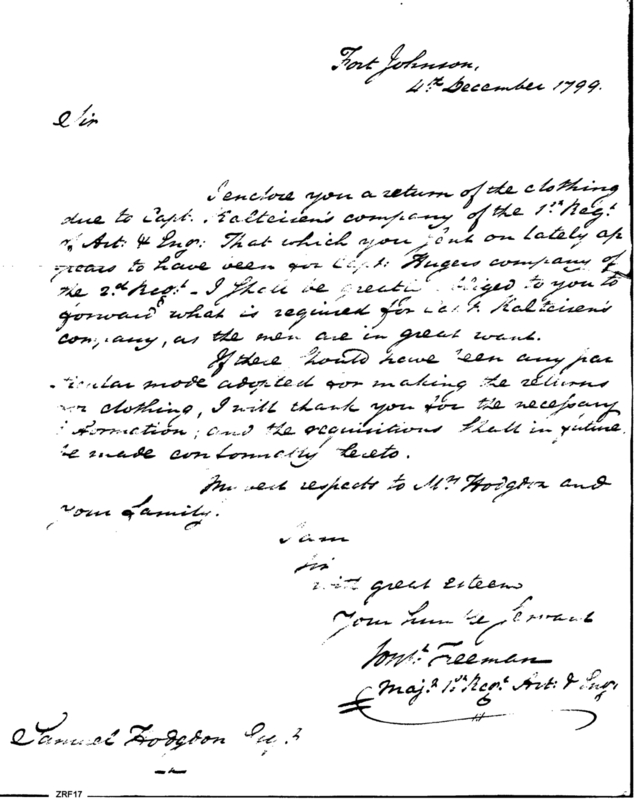 Fort Johnson,
4th December 1799.
Sir
I enclose you a return of the clothing
due to Capt. Kalteisen's company of the 1st Regt
of Art: & Eng: That which you sent on lately ap
pears to have been for Capt: Hugers company of
the 2nd Regt. I shall be greatly obliged to you to
forward what is required for Capt. Kalteisen's
company, as the men are in great want.
If there should have been any par
ticular mode adopted for making the returns
for clothing, I will thank you for the necessary
information; and the requisitions shall in future
be made conformably hereto.
My best respects to Mrs Hodgdon and
your family.
I am
Sir
with great esteem
Your humble Servant
Freeman
Majr. 1st Regt. Art: & Engr
Samuel Hodgdon Esqr
ZRF17